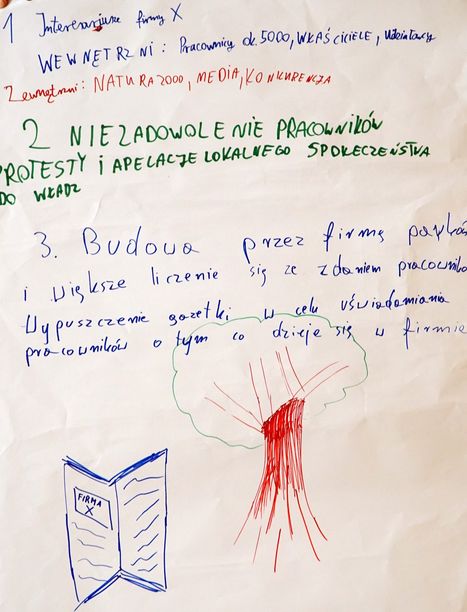 1 Interesariusze firmy X
WEWNĘTRZNI: Pracownicy ok. 5000, WŁAŚCICIELE, Udziałowcy
Zewnętrzni: NATURA 2000, MEDIA, KONKURENCJA
2 NIEZADOWOLENIE PRACOWNIKÓW
PROTESTY i APELACJE LOKALNEGO SPOŁECZEŃSTWA
DO WŁADZ
3. Budowa przez firmę
i większe liczenie się ze zdaniem pracownika
Wypuszczenie gazetki w celu uświadamiania
pracowników o tym co dzieje się w firmie
FIRMA
X